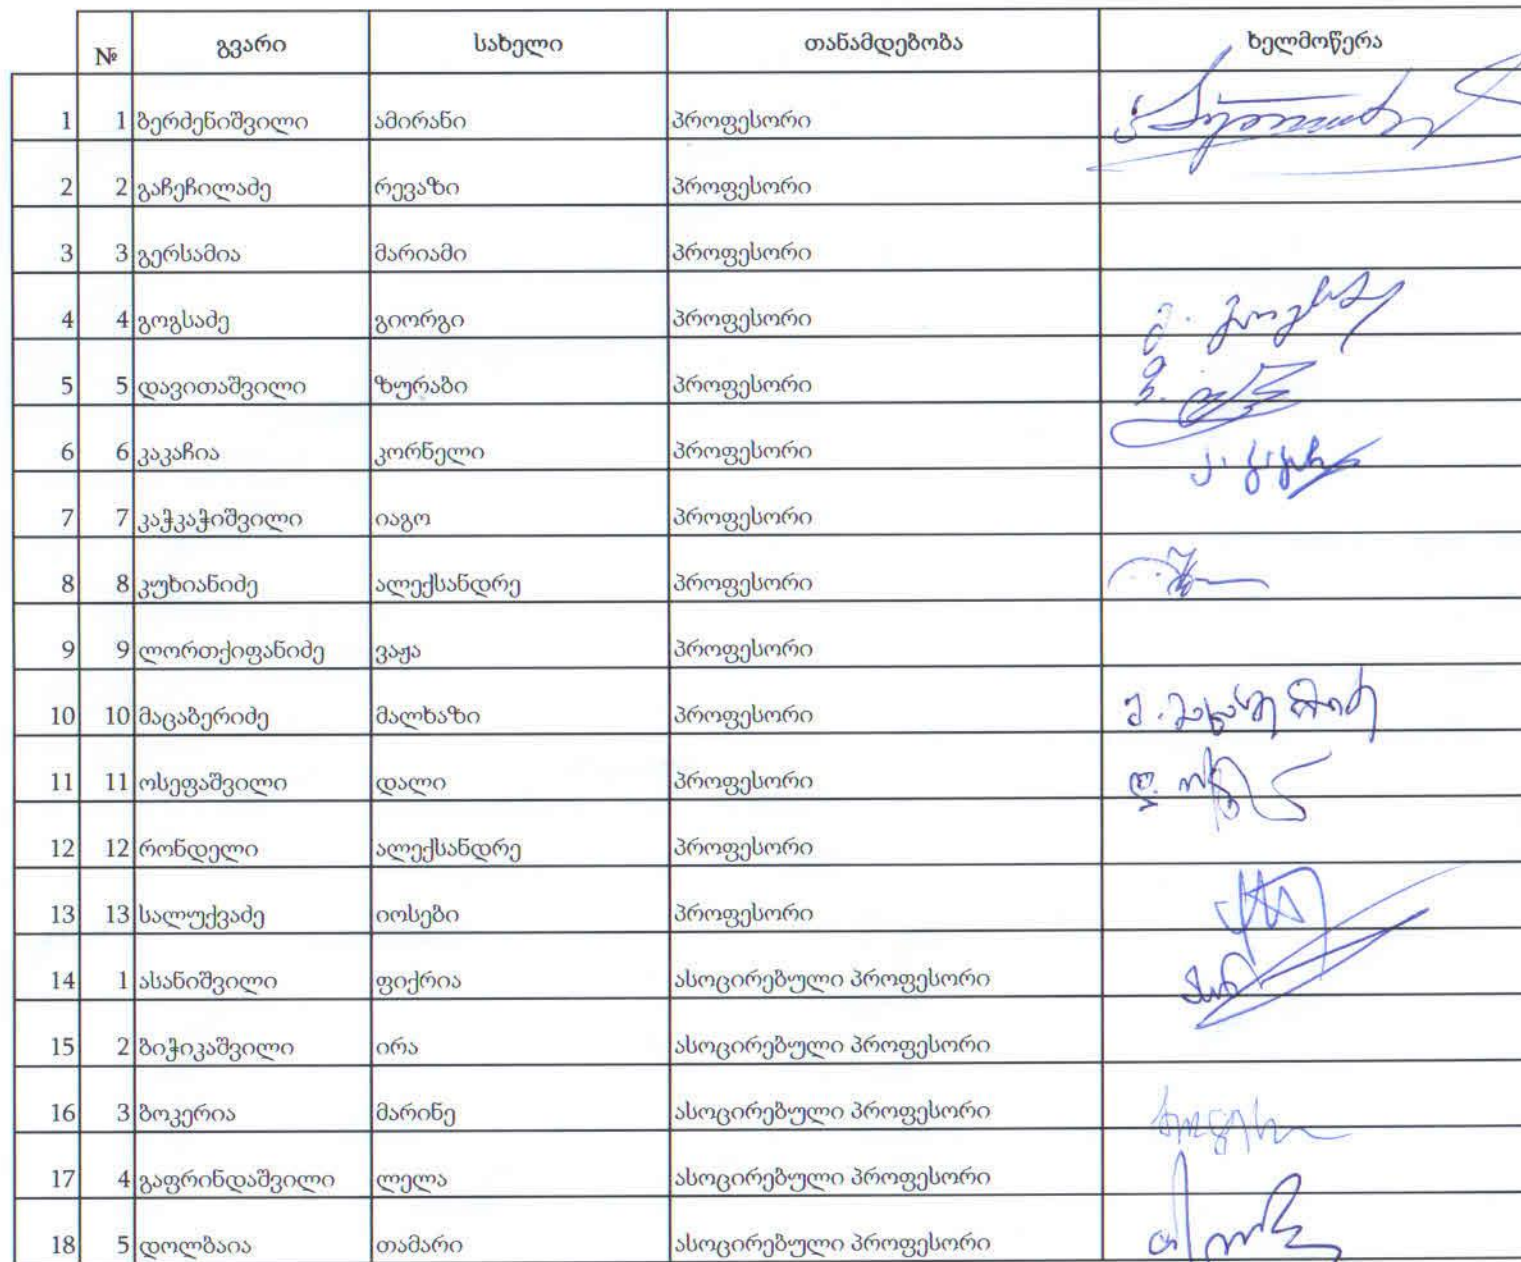 № გვარი სახელი თანამდებობა ხელმოწერა
1 1 ბერძენიშვილი ამირანი პროფესორი
2 2 გაჩეჩილაძე რევაზი პროფესორი
3 3 გერსამია მარიამი პროფესორი
4 4 გოგსაძე გიორგი პროფესორი
5 5 დავითაშვილი ზურაბი პროფესორი
6 6 კაკაჩია კორნელი პროფესორი
7 7 კაჭკაჭიშვილი იაგო პროფესორი
8 8 კუხიანიძე ალექსანდრე პროფესორი
9 9 ლორთქიფანიძე ვაჟა პროფესორი
10 10 მაცაბერიძე მალხაზი პროფესორი
11 11 ოსეფაშვილი დალი პროფესორი
12 12 რონდელი ალექსანდრე პროფესორი
13 13 სალუქვაძე იოსები პროფესორი
14 1 ასანიშვილი ფიქრია ასოცირებული პროფესორი
15 2 ბიჭიკაშვილი ირა ასოცირებული პროფესორი
16 3 ბოკერია მარინე ასოცირებული პროფესორი
17 4 გაფრინდაშვილი ლელა ასოცირებული პროფესორი
18 5 დოლბაია თამარი ასოცირებული პროფესორი